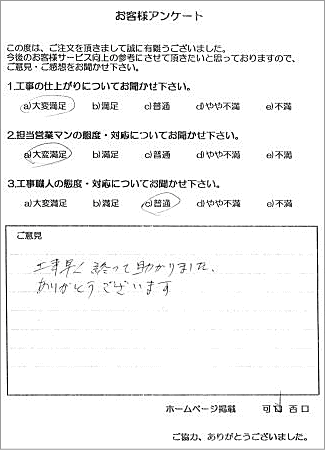 お客様アンケート
この度は、ご注文を頂きまして誠に有難うございました。
今後のお客様サービス向上の参考にさせて頂きたいと思っておりますので、
ご意見・ご感想をお聞かせ下さい。
1.工事の仕上がりについてお聞かせ下さい。
a)大変満足 b)満足 c)普通 d)やや不満 e)不満
2.担当営業マンの態度・対応についてお聞かせ下さい。
a)大変満足 b)満足 c)普通 d)やや不満 e)不満
3.工事職人の態度・対応についてお聞かせ下さい。
a)大変満足 b)満足 c)普通 d)やや不満 e)不満
ご意見
工事早く終って助かりました、
ありがとうございます
ホームページ掲載 可口 否口
ご協力、ありがとうございました。